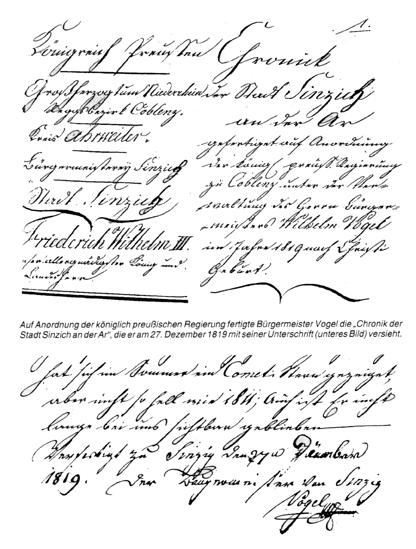 1.
Königreich Preussen
Großherzogtum Niederrhein
Reggsbezirk Coblenz.
Kreis Ahrweiler.
Bürgermeisterey Sinzich
Stadt Sinzich
Friederich Wilhelm III.
unser allergnädigster König und
Landesherr.
Chronick
der Stadt Sinzich
an der Ar
gefertiget auf Anordnung
der Königl. preuss. Regierung
zu Coblenz unter der Ver-
waltung des Herrn Bürger-
meisters Wilhelm Vogel
im Jahre 1819 nach Christi
Geburt.
Auf Anordnung der königlich preußischen Regierung fertigte Bürgermeister Vogel die „Chronik der
Stadt Sinzich an der Ar“, die er am 27. Dezember 1819 mit seiner Unterschrift (unteres Bild) versieht.
hat sich im Sommer ein Comet-Stern gezeiget,
aber nicht so hell wie 1811; Auch ist Er nicht
lange bei uns sichtbar geblieben
Verfertigt zu Sinzig den 27n
1819. Der Bürgermeister von Sinzig
Vogel